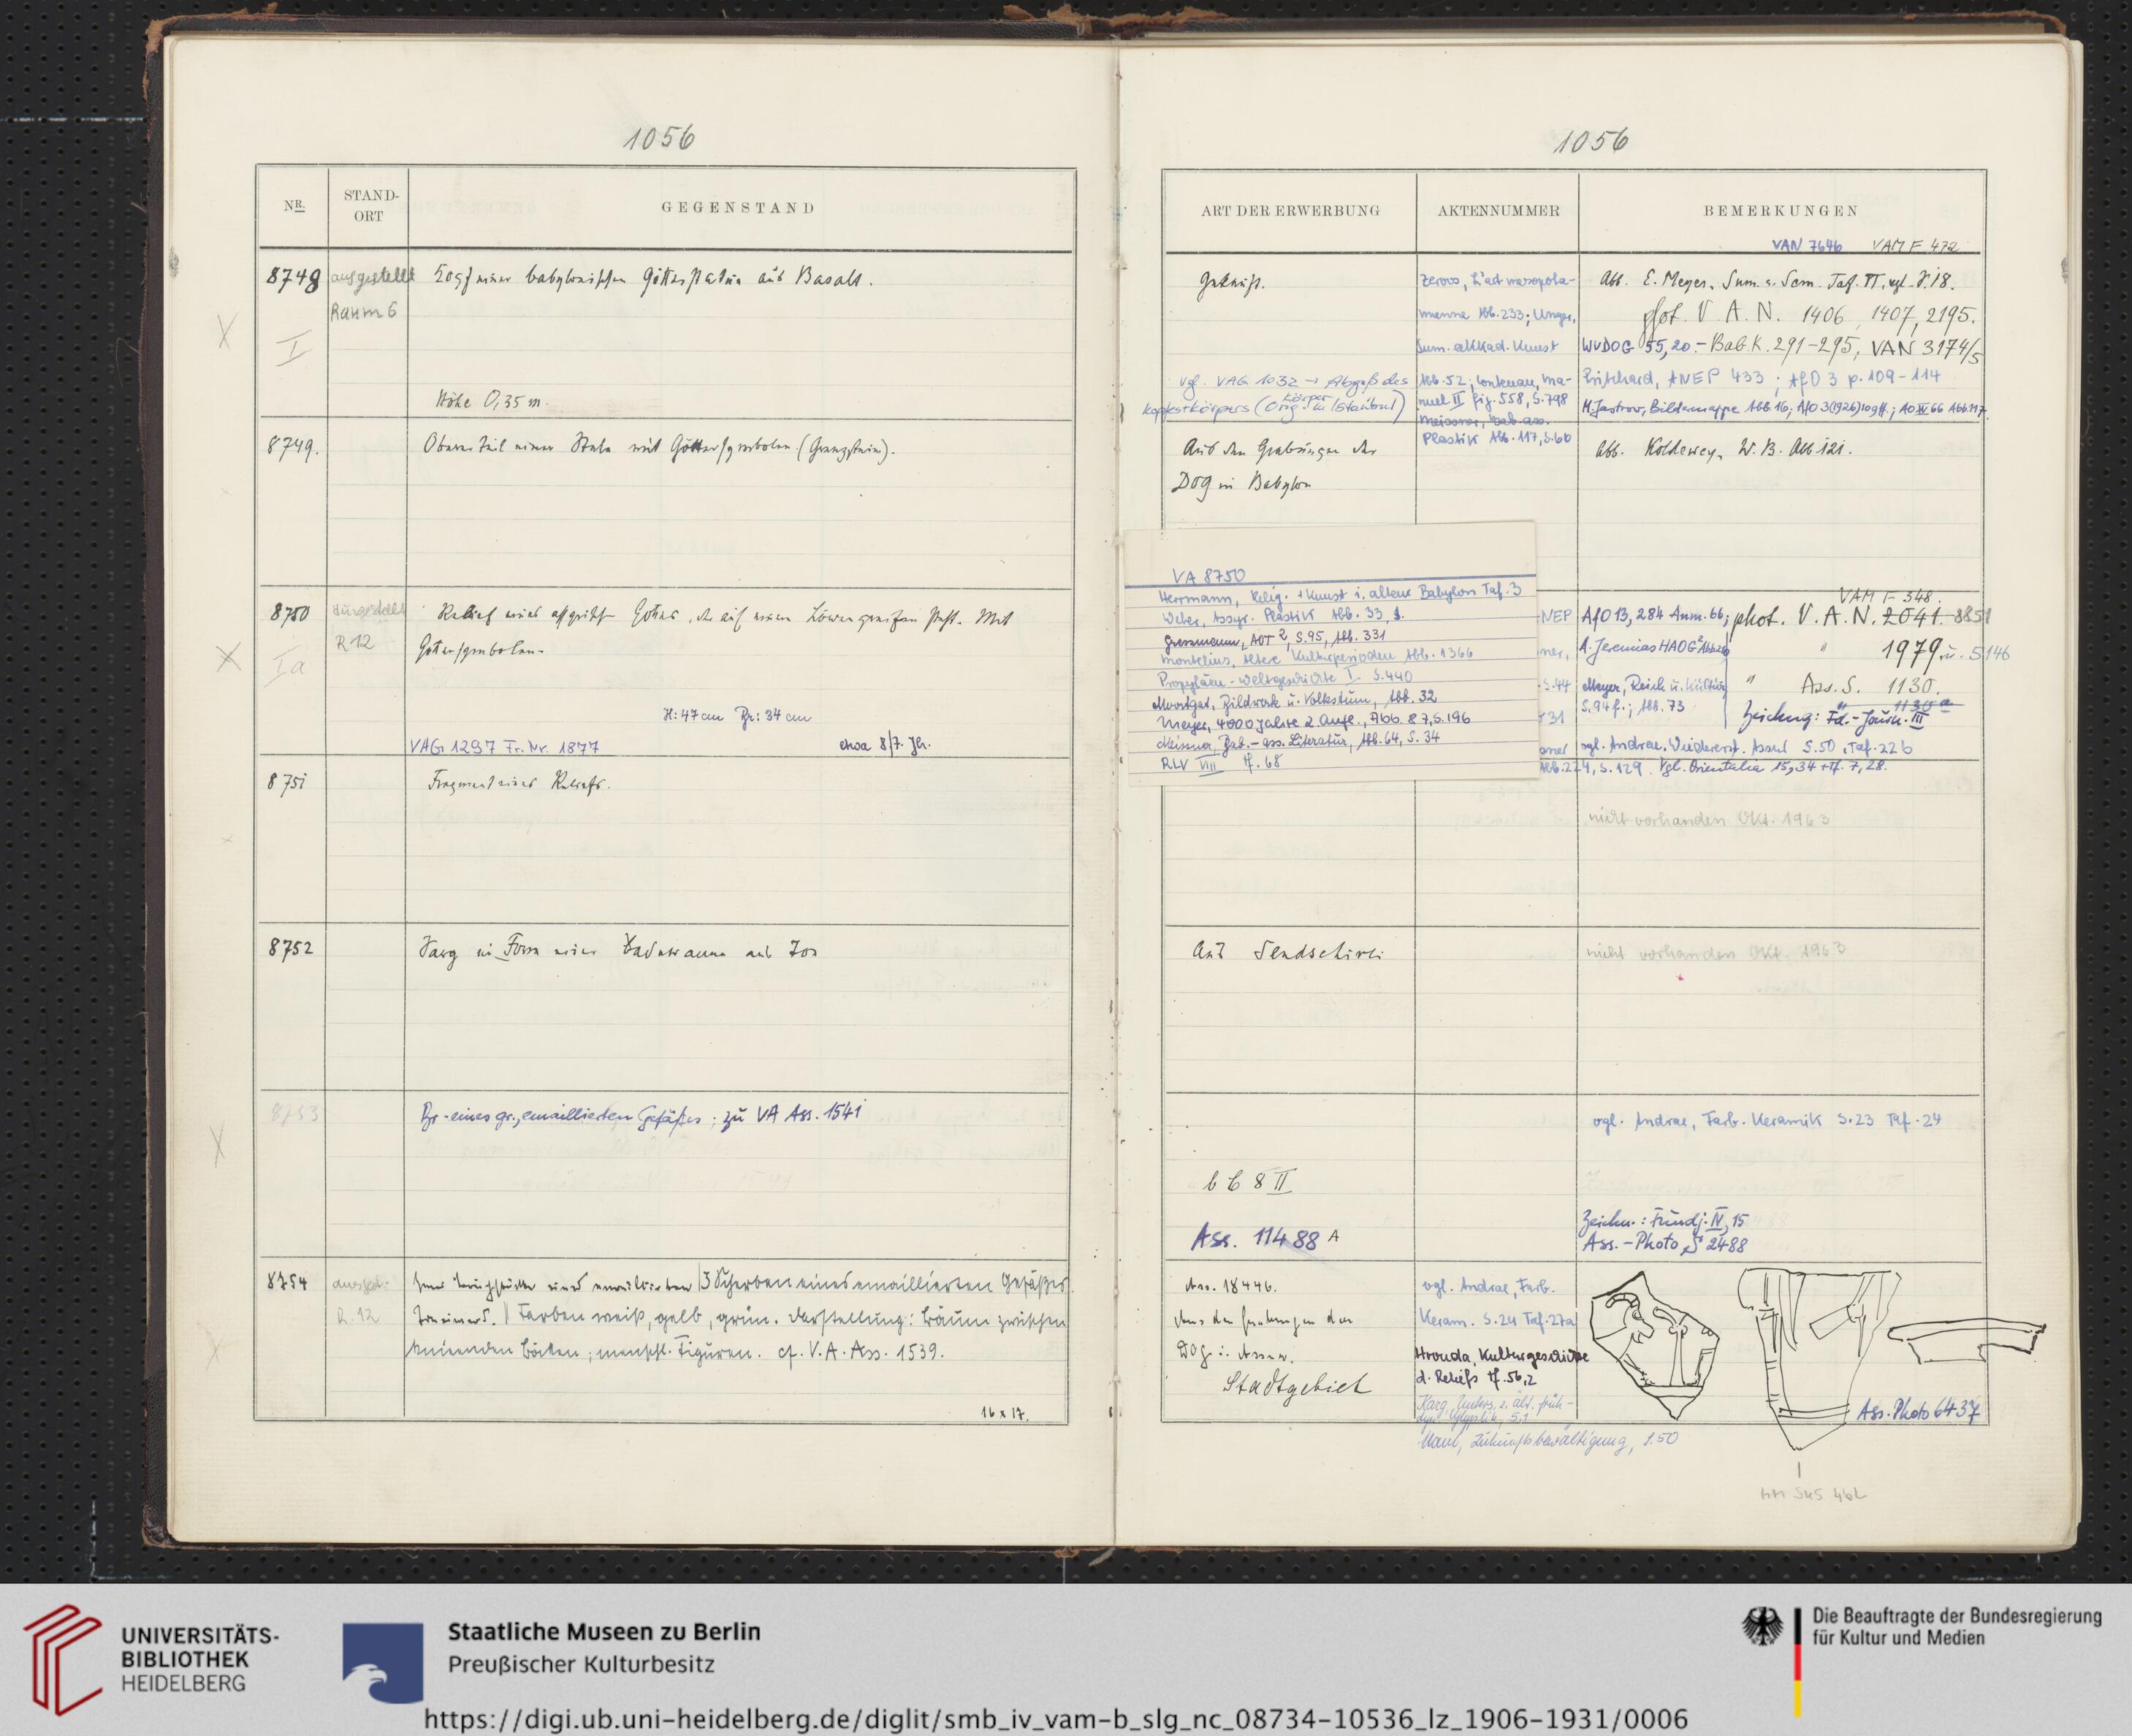 1056
NR.
STAND-
ORT
GEGENSTAND
8748
ausgestellt
Raum 6
I
Kopf einer babylonischen Götterstatue aus Basalt.
Höhe 0,35 m.
8749.
Oberer Teil einer Stele mit Göttersymbolen. (Grenzstein).
8750
ausgestellt
R 12
Ia
Relief eines assyrischen Gottes, der auf einem Löwengreifen steht. Mit
Göttersymbolen.
H: 47 cm Br: 34 cm
VAG 1297 Fr. Nr. 1877
etwa 8/7. Jh.
8751
Fragment eines Reliefs.
8752
Sarg in Form einer Badewanne aus Ton
8753
Br. eines gr., emaillierten Gefäßes; zu VA Ass. 1541
8754
ausgest.
R. 12
3 Scherben eines emaillierten Gefäßes.
Farben weiß, gelb, grün. Darstellung: Bäum zwischen
knieenden Böcken; menschl. Figuren. cf. V.A. Ass. 1539.
16 x 17.
1056
ART DER ERWERBUNG
AKTENNUMMER
BEMERKUNGEN
VAN 7646 VAM F 472
Gekauft.
Zervos, L'art mesopota-
mienne Abb. 233; Unger,
Sum. akkad. Kunst
Abb. 52; Contenau, Ma-
nuel II fig. 558, S. 798
Meissner, bab. ass.
Plastik Abb. 117, S. 60
Abb. E. Meyer, Sum. u. Sem. Taf. II, vgl. S. 18.
phot. V. A. N. 1406, 1407, 2195.
WVDOG 55, 20. - Bab. K. 291-295, VAN 3174/5
Pritchard, ANEP 433; AfO 3 p. 109-114
M. Jastrow, Bildermappe Abb 16; AfO 3 (1926) 109 ff.; AO XV 66 Abb. 117
vgl. VAG 1032 → Abguß des
körper
(Orig. in Istanbul)
Aus den Grabungen der
DOG in Babylon
Abb. Koldewey, W. B. Abb 121.
VA 8750
Herrmann, Relig. + Kunst i. alten Babylon Taf. 3
Weber, Assyr. Plastik Abb. 33
Gressmann, AOT 2, S. 95, Abb. 331
Montelius, Ältere Kulturperioden Abb. 1366
Propyläen-Weltgeschichte I S. 440
Moortgat, Bildwerk u. Volkstum, Abb. 32
Meyer, 4000 Jahre 2. Aufl., Abb. 87, S. 196
Meissner, Bab.-ass. Literatur, Abb. 64, S. 34
RLV VIII Tf. 68
VAM F 348.
NEP
AfO 13, 284 Anm. 66; phot. V. A. N. 2041. 8851
ner,
A. Jeremias HAOG²
" 1979 u. 5146
S. 44
Meyer, Reich u. Kultur
S. 94 f.; Abb. 73
" Ass. S. 1130.
" 1130 a
Zeichng: Fd.-Journ. III
vgl. Andrae, Wiedererst. Assur S. 50, Taf. 22 b
Abb. 224, S. 129. Vgl. Orientalia 15, 34 + Tf. 7, 28.
nicht vorhanden Okt. 1963
Aus Sendschirli
nicht vorhanden Okt. 1963
vgl. Andrae, Farb. Keramik S. 23 Taf. 24
b 6 8 II
Ass. 11488 A
Zeichn.: Fundj. IV, 15
Ass.-Photo S 2488
Ass. 18446.
Aus den Grabungen der
DOG in Assur.
Stadtgebiet
vgl. Andrae, Farb.
Keram. S. 24 Taf. 27a
Hrouda, Kulturgeschichte
d. Reliefs Tf. 56, 2
Maul, Zukunftsbewältigung, S. 50
Ass. Photo 6437
UNIVERSITÄTS-
BIBLIOTHEK
HEIDELBERG
Staatliche Museen zu Berlin
Preußischer Kulturbesitz
Die Beauftragte der Bundesregierung
für Kultur und Medien
https://digi.ub.uni-heidelberg.de/diglit/smb_iv_vam-b_slg_nc_08734-10536_lz_1906-1931/0006